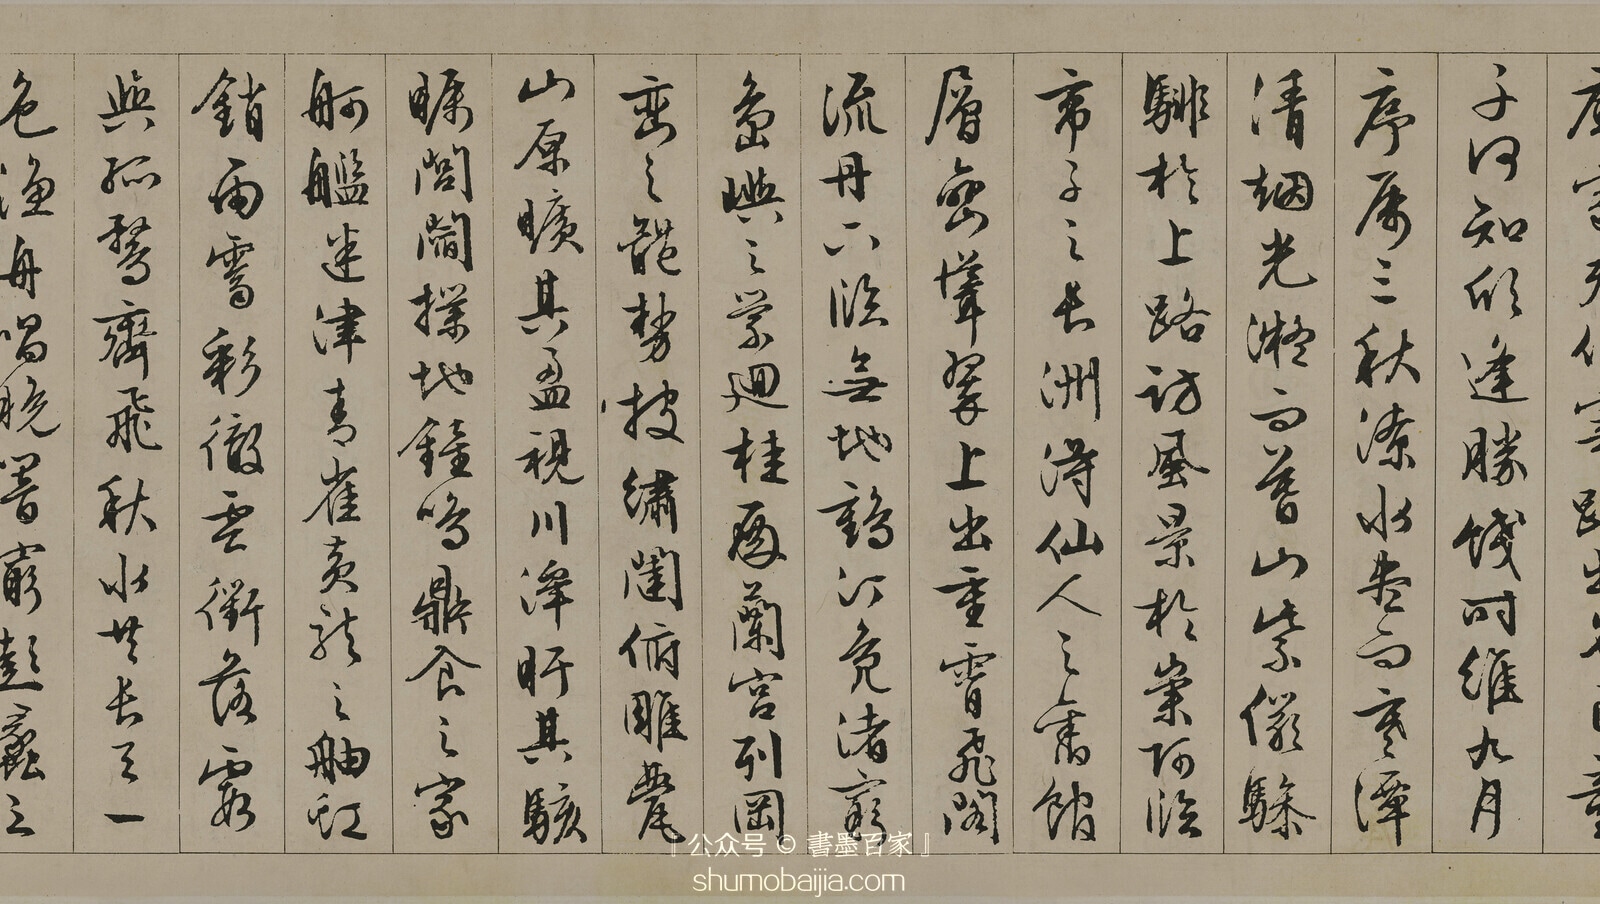 庫家君作宰路出名區童
子何知欣逢勝餞时維九月
序属三秋潦水盡而寒潭
清烟光凝而暮山紫儼驂
騑於上路訪風景於崇阿臨
帝子之長洲得仙人之舊館
層巒聳翠上出重霄飛閣
流丹下臨無地鶴汀凫渚窮
島嶼之縈迴桂殿蘭宮列岡
巒之體勢披繡闥俯雕甍
山原曠其盈視川澤盱其駭
矚閭閻撲地鐘鳴鼎食之家
舸艦迷津青雀黃龍之舳虹
銷雨霽彩徹雲衢落霞
與孤鶩齊飛秋水共長天一
色漁舟唱晚響窮彭蠡之
『公众号 © 書墨百家』
shumobaijia.com